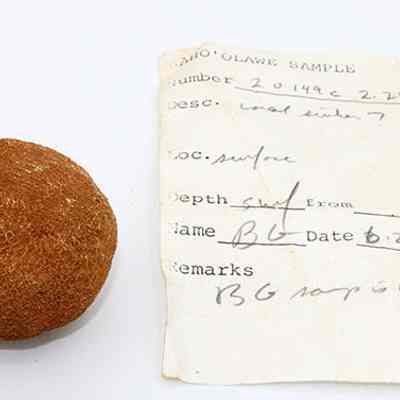 AHO'OLAWE SAMPLE
Number 20149c 2.2
Desc.
Loc. surface
Depth surf from
Name BG Date 6.2
Remarks
BG